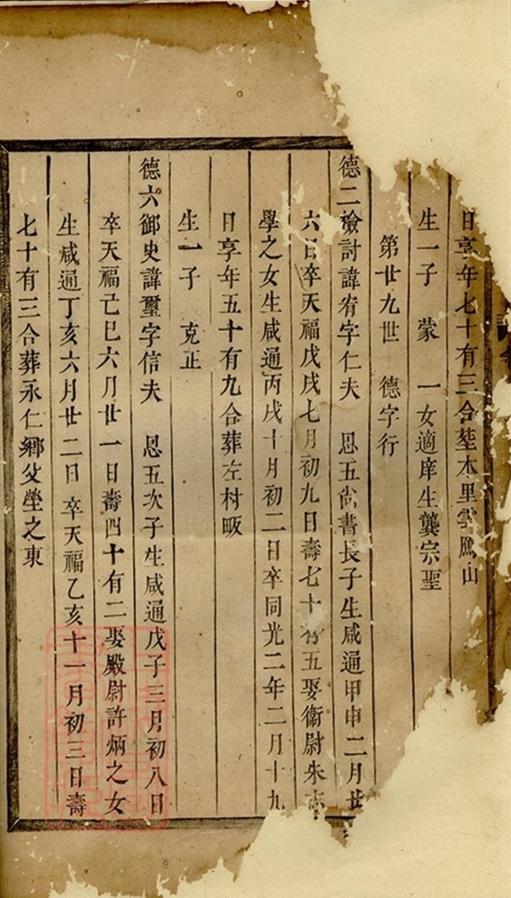 日享年七十有三合塟本里雲鳳山
生一子　蒙　一女適庠生龔宗聖
第廿九世　德字行
德二檢討諱宥字仁夫　恩五尚書長子生咸通甲申二月廿
六日卒天福戊戌七月初九日壽七十有五娶衛尉朱志
學之女生咸通丙戌十月初二日卒同光二年二月十九
日享年五十有九合葬左村畈
生一子　克正
德六御史諱璽字信夫　恩五次子生咸通戊子三月初八日
卒天福己巳六月廿一日壽四十有二娶殿尉許炳之女
生咸通丁亥六月廿二日卒天福乙亥十一月初三日壽
七十有三合葬永仁鄉父塋之東